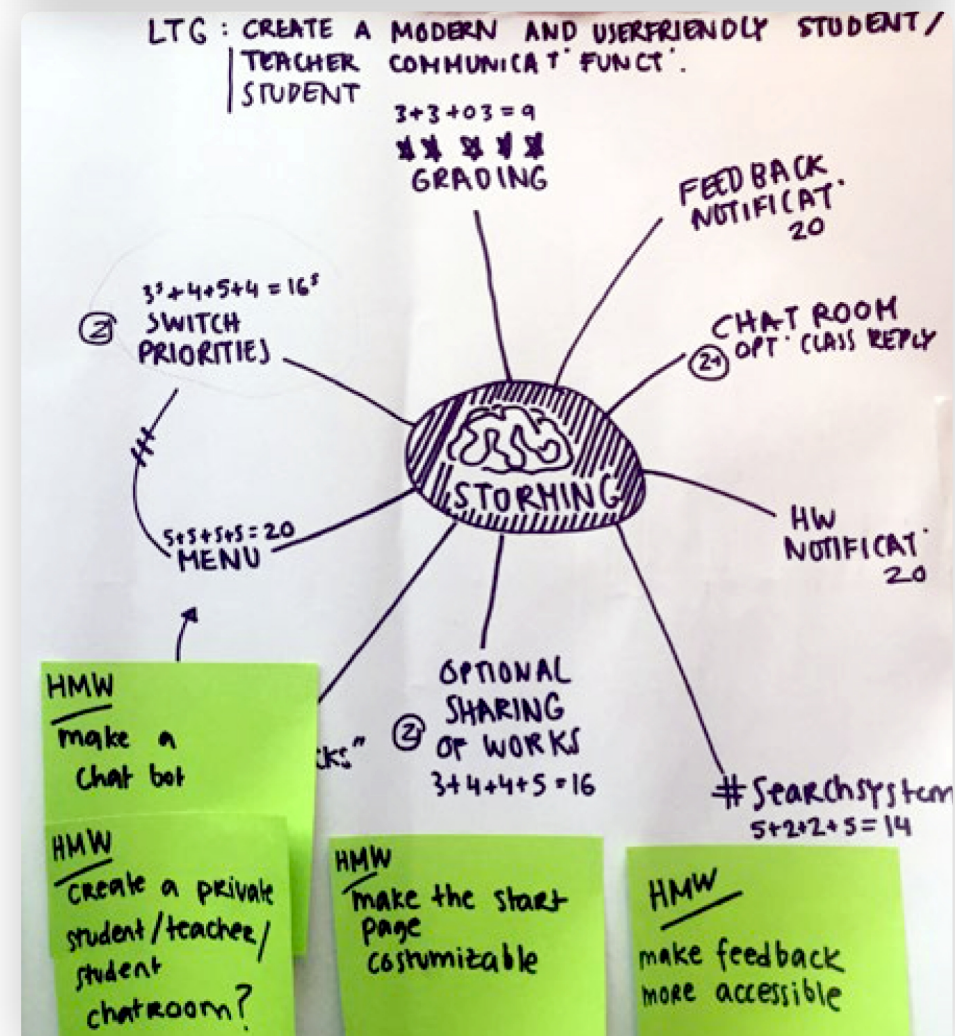 LTG : CREATE A MODERN AND USERFRIENDLY STUDENT/
TEACHER COMMUNICAT· FUNCT·.
STUDENT
3+3+03=9
GRADING
FEEDBACK
NOTIFICAT·
20
3⁵+4+5+4=16⁵
② SWITCH
PRIORITIES
CHAT ROOM
OPT· CLASS REPLY
STORMING
5+5+5+5=20
MENU
HW
NOTIFICAT·
20
OPTIONAL
SHARING
② OF WORKS
3+4+4+5=16
cks"
#Searchsystem
5+2+2+5=14
HMW
make a
Chat bot
HMW
create a private
student/teacher/
student
chatroom?
HMW
make the start
page
costumizable
HMW
make feedback
more accessible